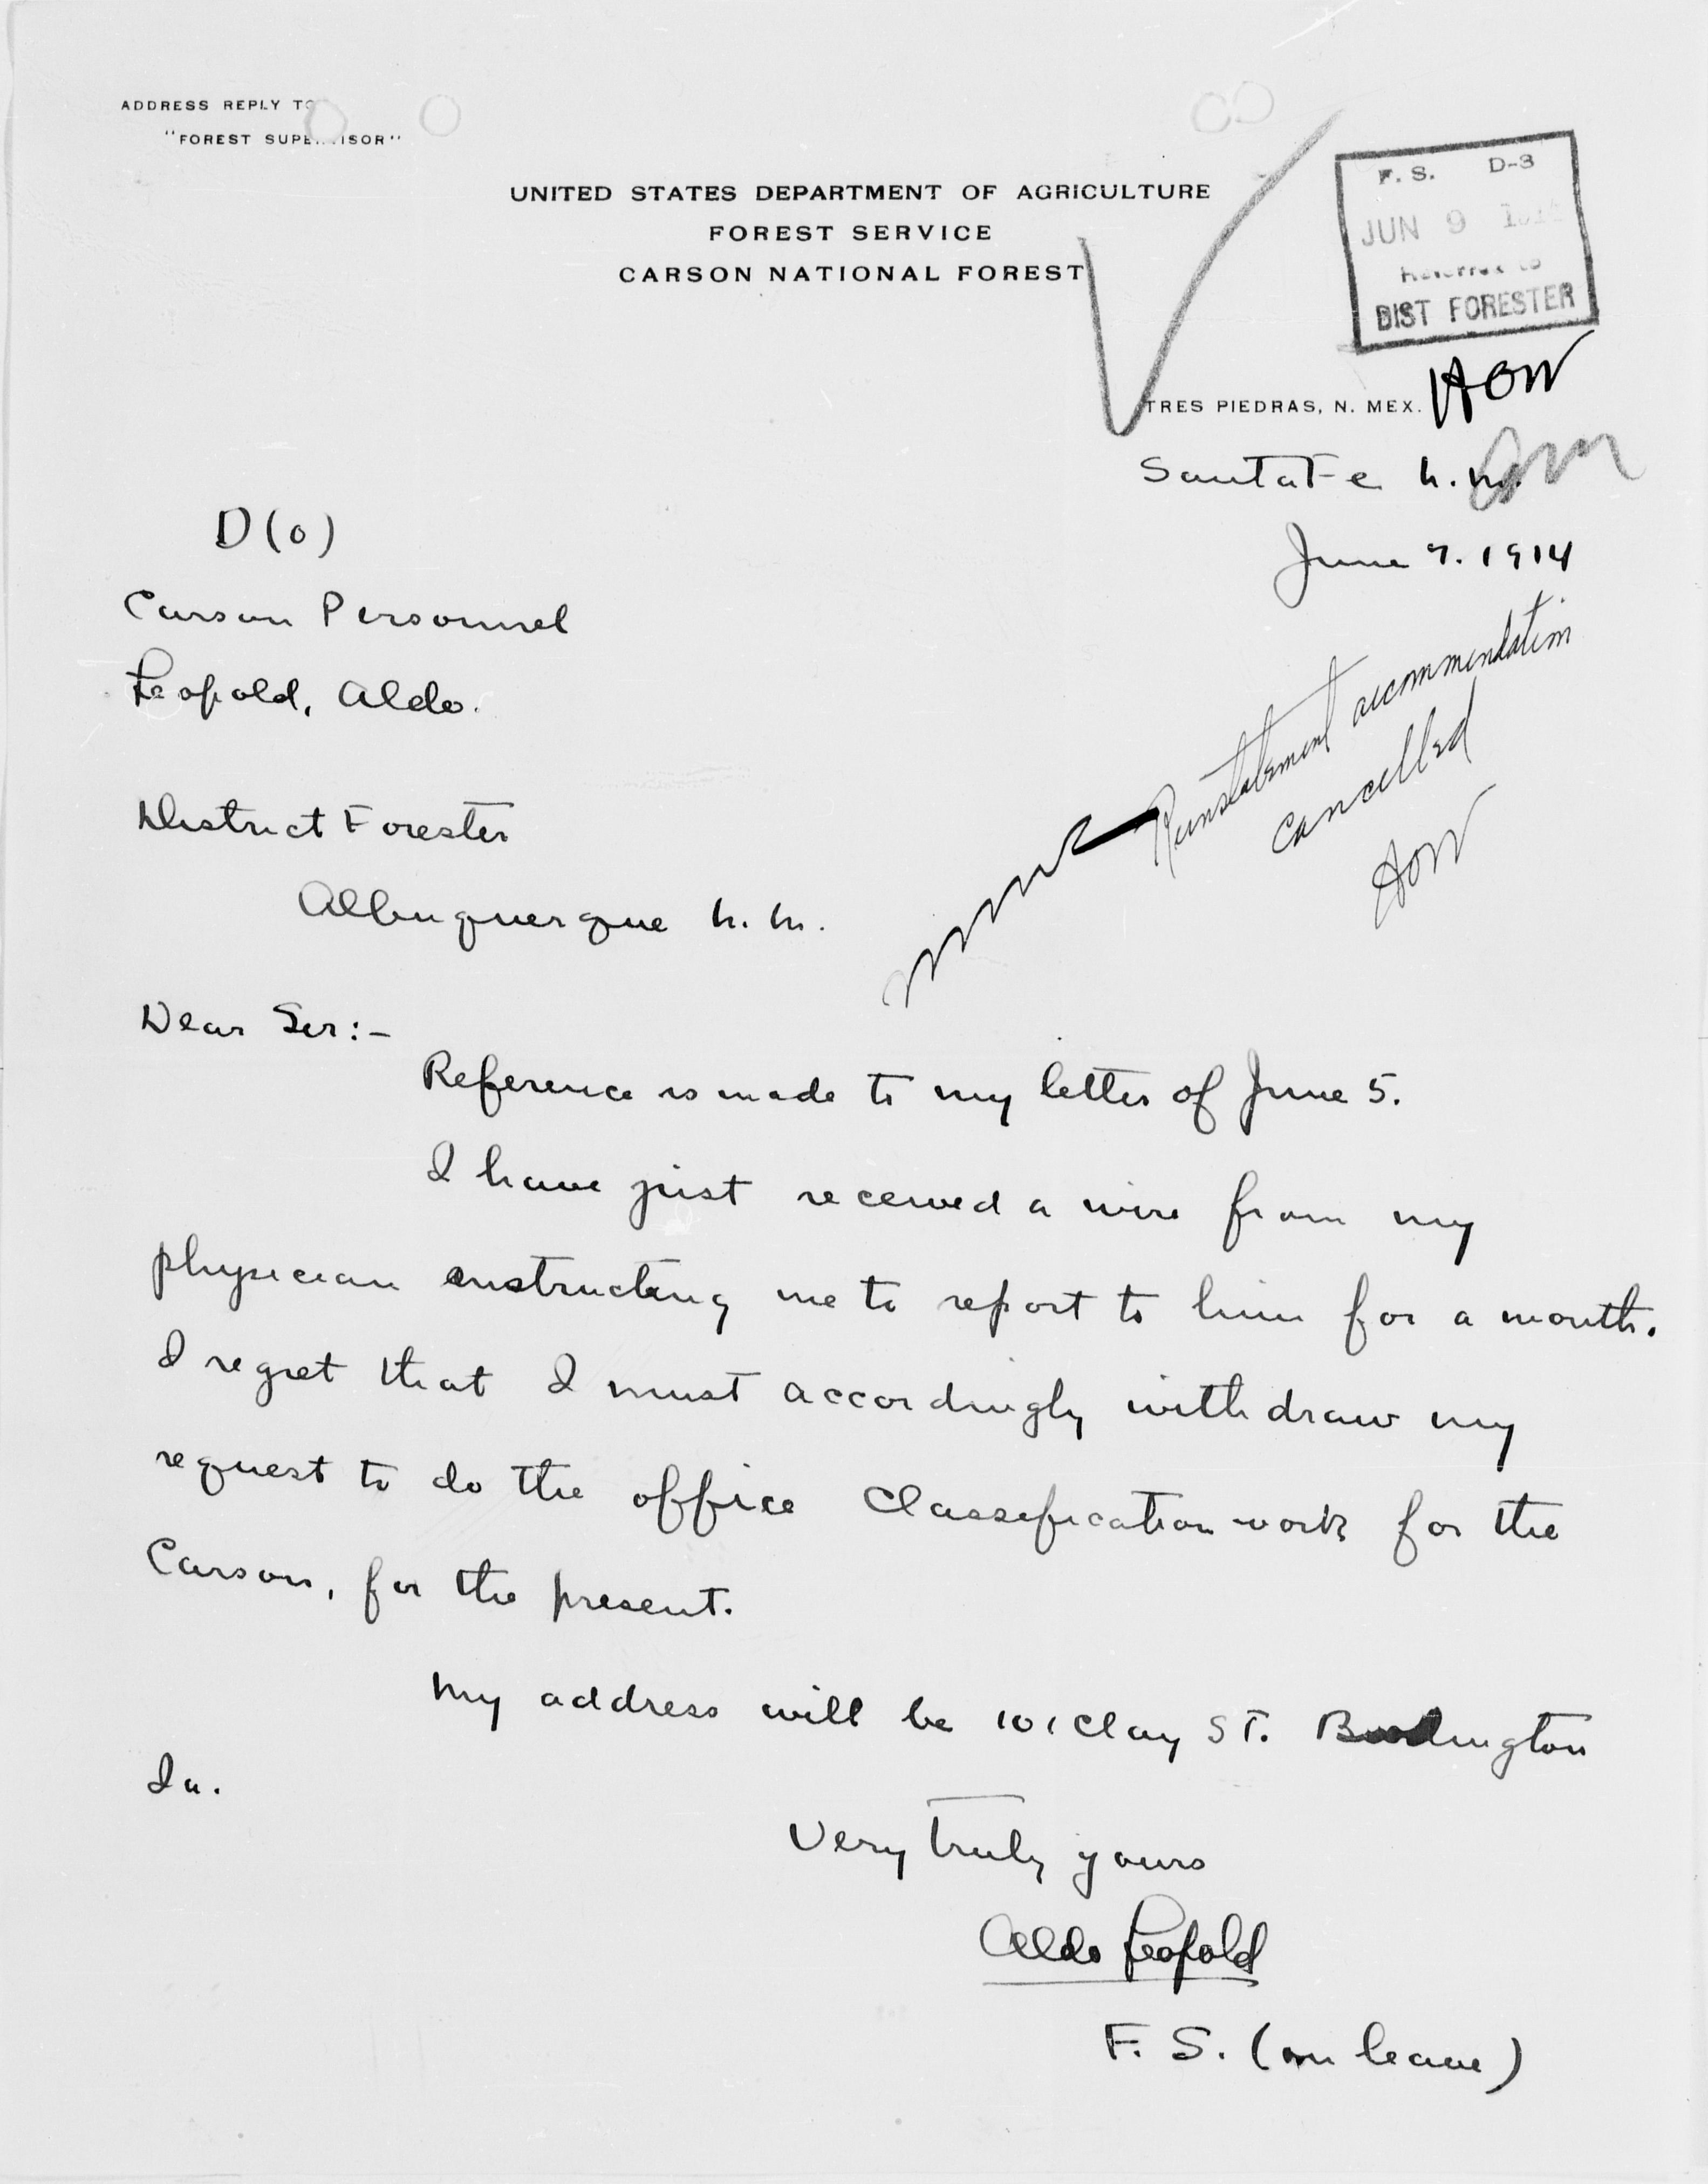 ADDRESS REPLY TO
"FOREST SUPERVISOR"
UNITED STATES DEPARTMENT OF AGRICULTURE
FOREST SERVICE
CARSON NATIONAL FOREST
F. S. D-3
JUN 9 1914
DIST FORESTER
TRES PIEDRAS, N. MEX.
AOW
Santa Fe N.M.
June 7. 1914
D (o)
Carson Personnel
Leopold, Aldo.
Reinstatement recommendation
cancelled
AOW
District Forester
Albuquerque N.M.
Dear Sir:-
Reference is made to my letter of June 5.
I have just received a wire from my
physician instructing me to report to him for a month.
I regret that I must accordingly withdraw my
request to do the office classification work for the
Carson, for the present.
My address will be 101 Clay St. Burlington
Ia.
Very truly yours
Aldo Leopold
F. S. (on leave)